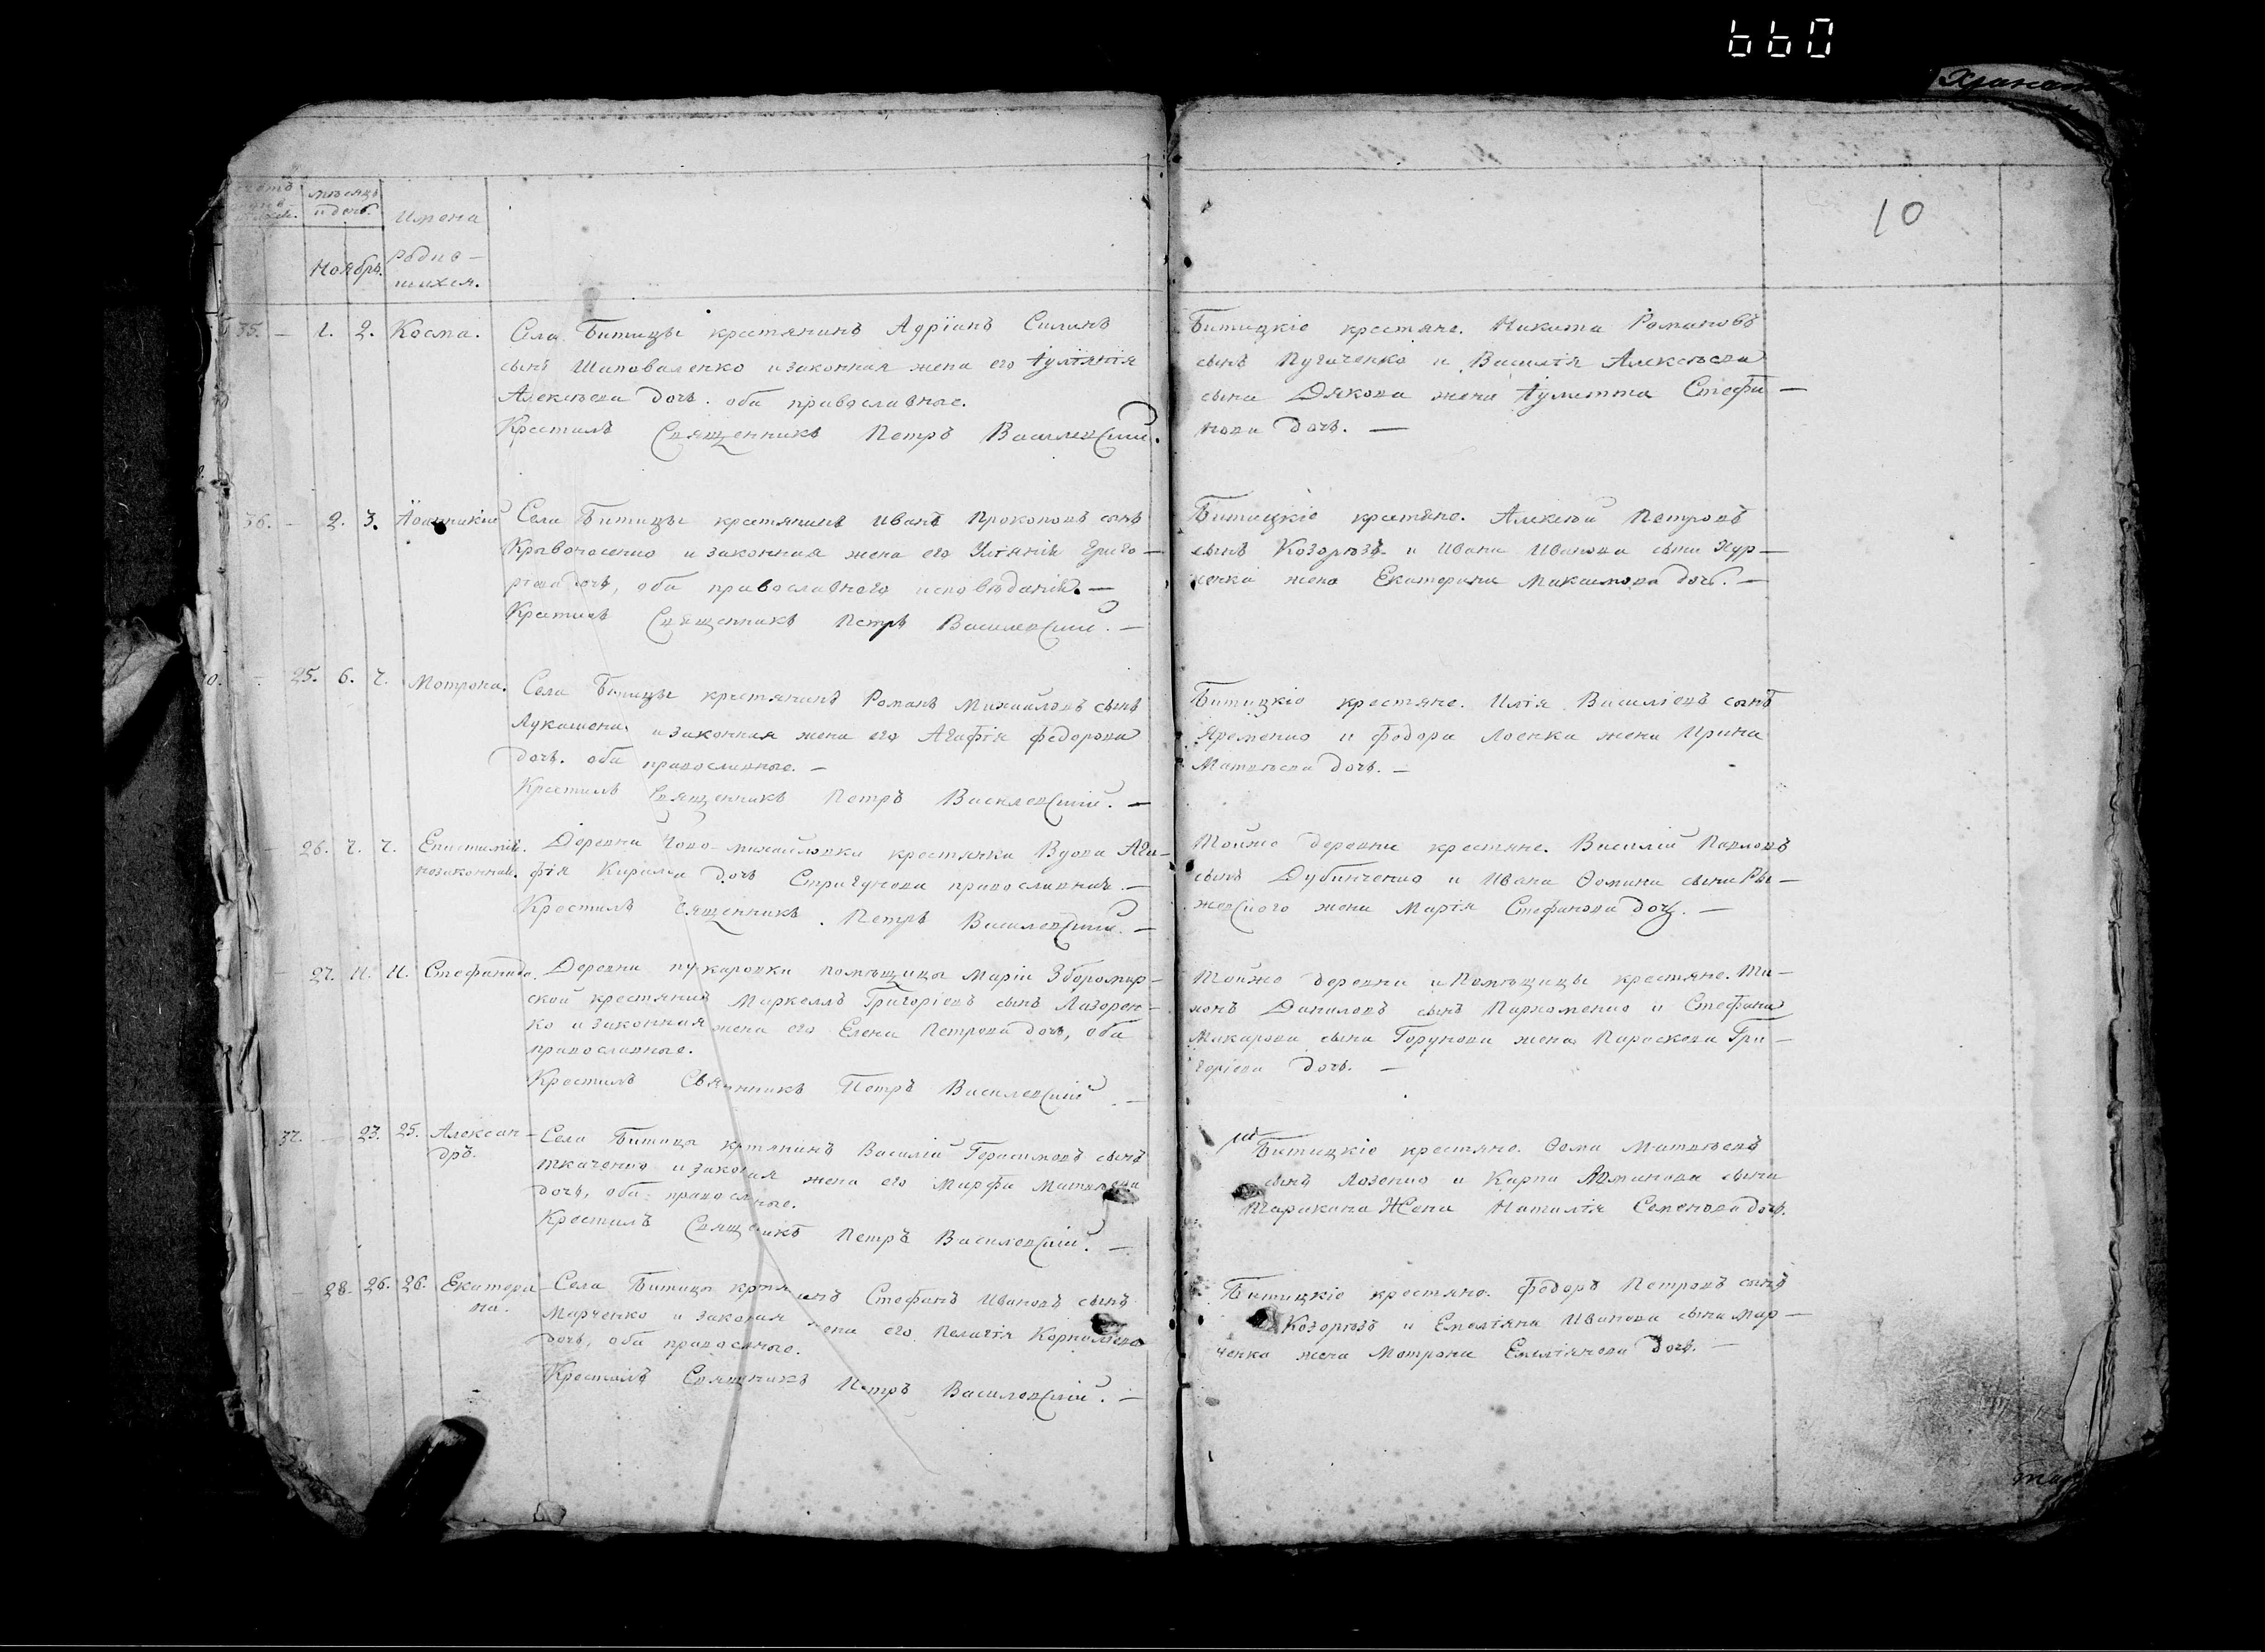 660
Хранит
10
мѣсяцъ
и день.
Имена
Родив–
шихся.
Ноябрь.
35. – 1. 2. Косма. Села Битицы крестянинъ Адріанъ Силинъ
сынъ Шаповаленко и законная жена его Іуліянія
Алексѣева дочь. оба православные.
Крестилъ Священникъ Петръ Василевскій.
Битицкіе крестяне. Никита Романовъ
сынъ Пугаченко и Василія Алексѣева
сына Дякова жена Іулитта Стефа–
нова дочь. –
36. – 2. 3. Іоанникій Села Битицы крестянинъ Иванъ Прокоповъ сынъ
Кривоносенко и законная жена его Уліянія Григо–
ріева дочь, оба православнаго исповѣданія. –
Крестилъ Священникъ Петръ Василевскій. –
Битицкіе крестяне. Алексѣй Петровъ
сынъ Козорѣзъ и Ивана Иванова сына Кур–
ченка жена Екатерина Максимова дочь. –
– 25. 6. 7. Мотрона. Села Битицы крестянинъ Романъ Михайловъ сынъ
Лукашенка и законная жена его Агафія Федорова
дочь. оба православные. –
Крестилъ Священникъ Петръ Василевскій. –
Битицкіе крестяне. Илія Василіевъ сынъ
Яременко и Федора Лоенка жена Ирина
Матвѣева дочь. –
– 26. 7. 7. Епистимія. Деревни Ново-михайловки крестянка Вдова Ага–
незаконная. фія Кирилова дочь Стригунова православная. –
Крестилъ Священникъ Петръ Василевскій. –
Тойже деревни крестяне. Василій Павловъ
сынъ Дубинченко и Ивана Ѳомина сына Ры–
жевского жена Марія Стефанова дочь. –
– 27. 11. 11. Стефанида. Деревни пукаровки помѣщицы Маріи Збороmир–
ской крестянинъ Маркеллъ Григоріевъ сынъ Лазорен–
ко и законная жена его Елена Петрова дочь, оба
православные.
Крестилъ Свянникъ Петръ Василевскій. –
Тойже деревни и Помѣщицы крестяне. Ти–
монъ Даниловъ сынъ Пархоменко и Стефана
Макарова сына Горунова жена Параскева Гри–
горіева дочь. –
37. – 23. 25. Алексан–
дръ.
Села Битицы кртянинъ Василій Герасимовъ сынъ
ткаченко и законая жена его Марфа Матвѣева
дочь, оба правосланые.
Крестилъ Священикъ Петръ Василевскій. –
Битицкіе крестяне. Ѳома Матвѣевъ
сынъ Лозенко и Карпа Романова сына
Таракана Жена Наталія Семенова дочь.
– 28. 26. 26. Екатери–
на.
Села Битицы кртянинъ Стефанъ Ивановъ сынъ
Марченко и законая жена его Пелагія Корниліева
дочь, оба правосланые.
Крестилъ Священикъ Петръ Василевскій. –
Битицкіе крестяне. Федоръ Петровъ сынъ
Козорѣзъ и Емеліяна Иванова сына Мар–
ченка жена Мотрона Емеліянова дочь. –